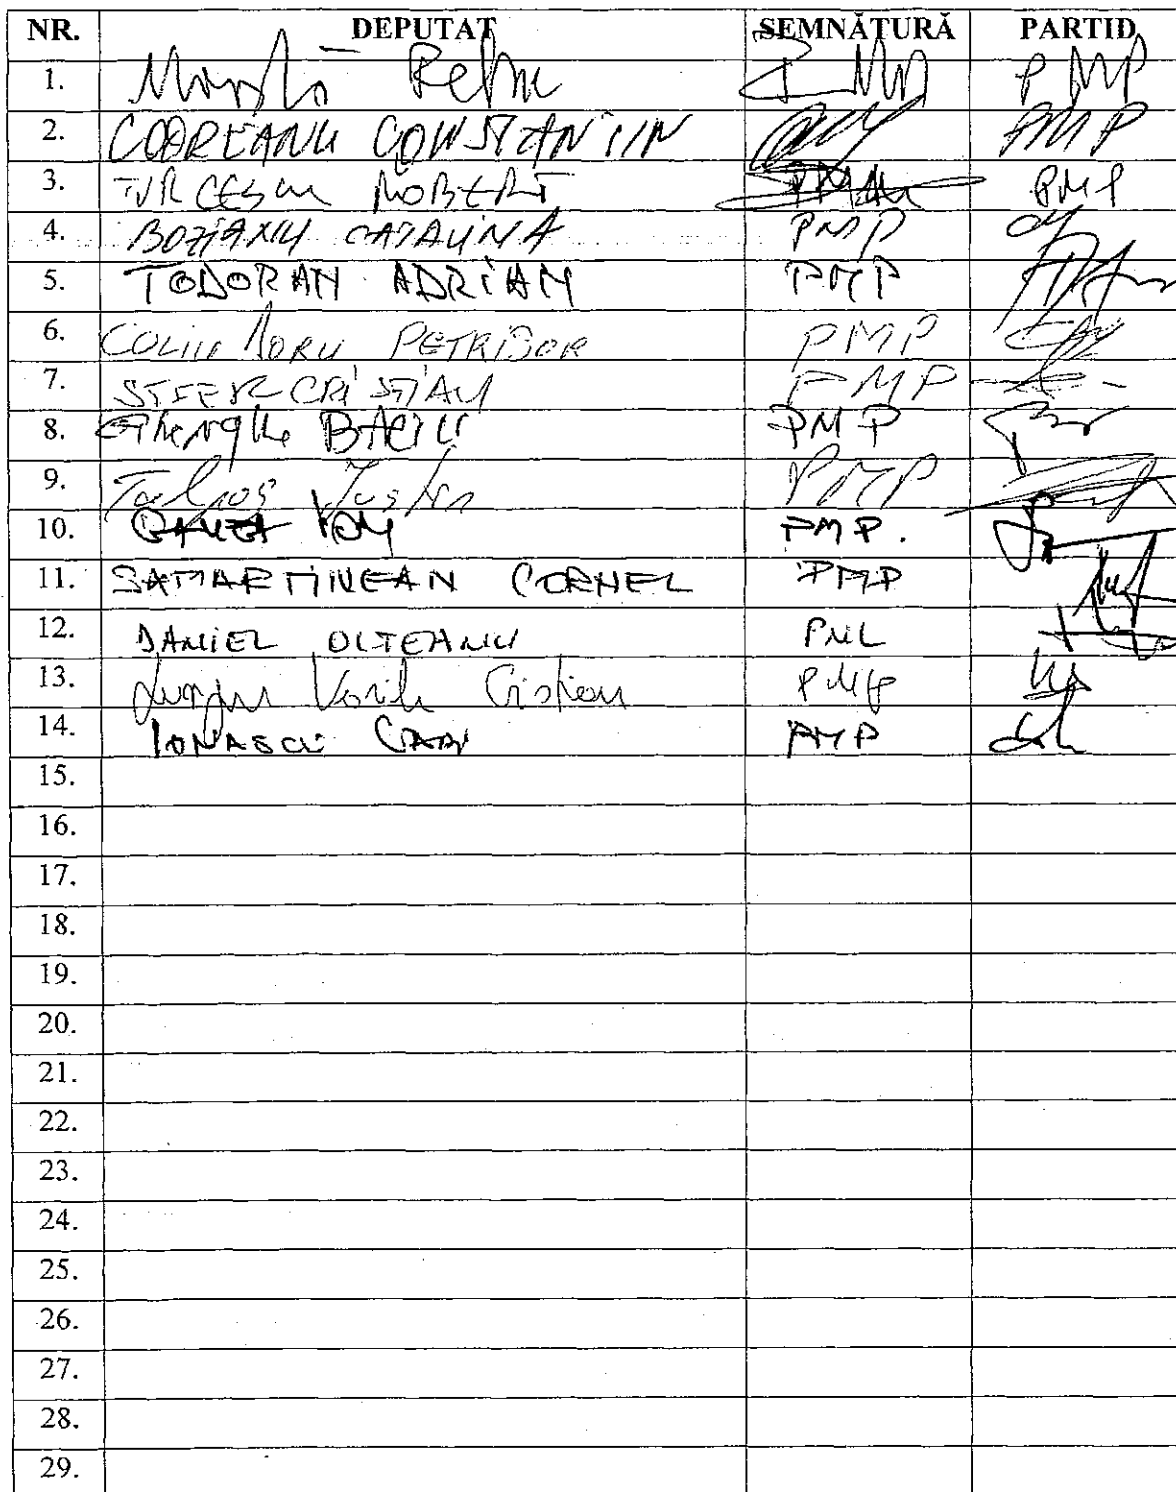 NR. DEPUTAT SEMNĂTURĂ PARTID
1. PMP
2. CODREANU CONSTANTIN PMP
3. TURCESCU ROBERT PMP
4. BOZIANU CATALINA PMP
5. TODORAN ADRIAN PMP
6. PETRIȘOR PMP
7. STEER CRISTIAN PMP
8. Gheorghe BACIU PMP
9. Talpoș Iustin PMP
10. ION PMP.
11. SAMARTINEAN CORNEL PMP
12. DANIEL OLTEANU PNL
13. Lungu Vasile Cristian PMP
14. IONASCU PMP
15.
16.
17.
18.
19.
20.
21.
22.
23.
24.
25.
26.
27.
28.
29.